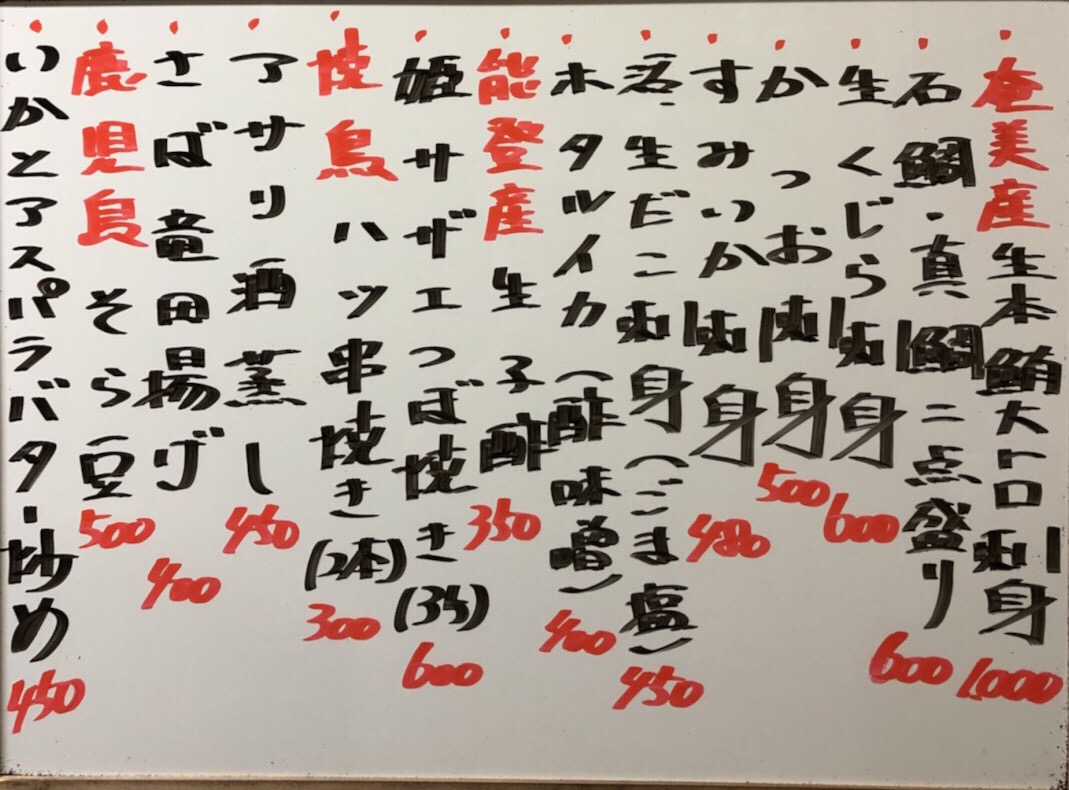 奄美産生本鮪大トロ刺身 1,000
石鯛・真鯛二点盛り 600
生くじら刺身 600
かつお刺身 500
すみいか刺身 480
活生だこ刺身(ごま塩) 450
ホタルイカ(酢味噌) 400
能登産生子酢 350
姫サザエつぼ焼き(3ケ) 600
焼鳥 ハツ串焼き(2本) 300
アサリ酒蒸し 450
さば竜田揚げ 400
鹿児島そら豆 500
いかとアスパラバター炒め 450